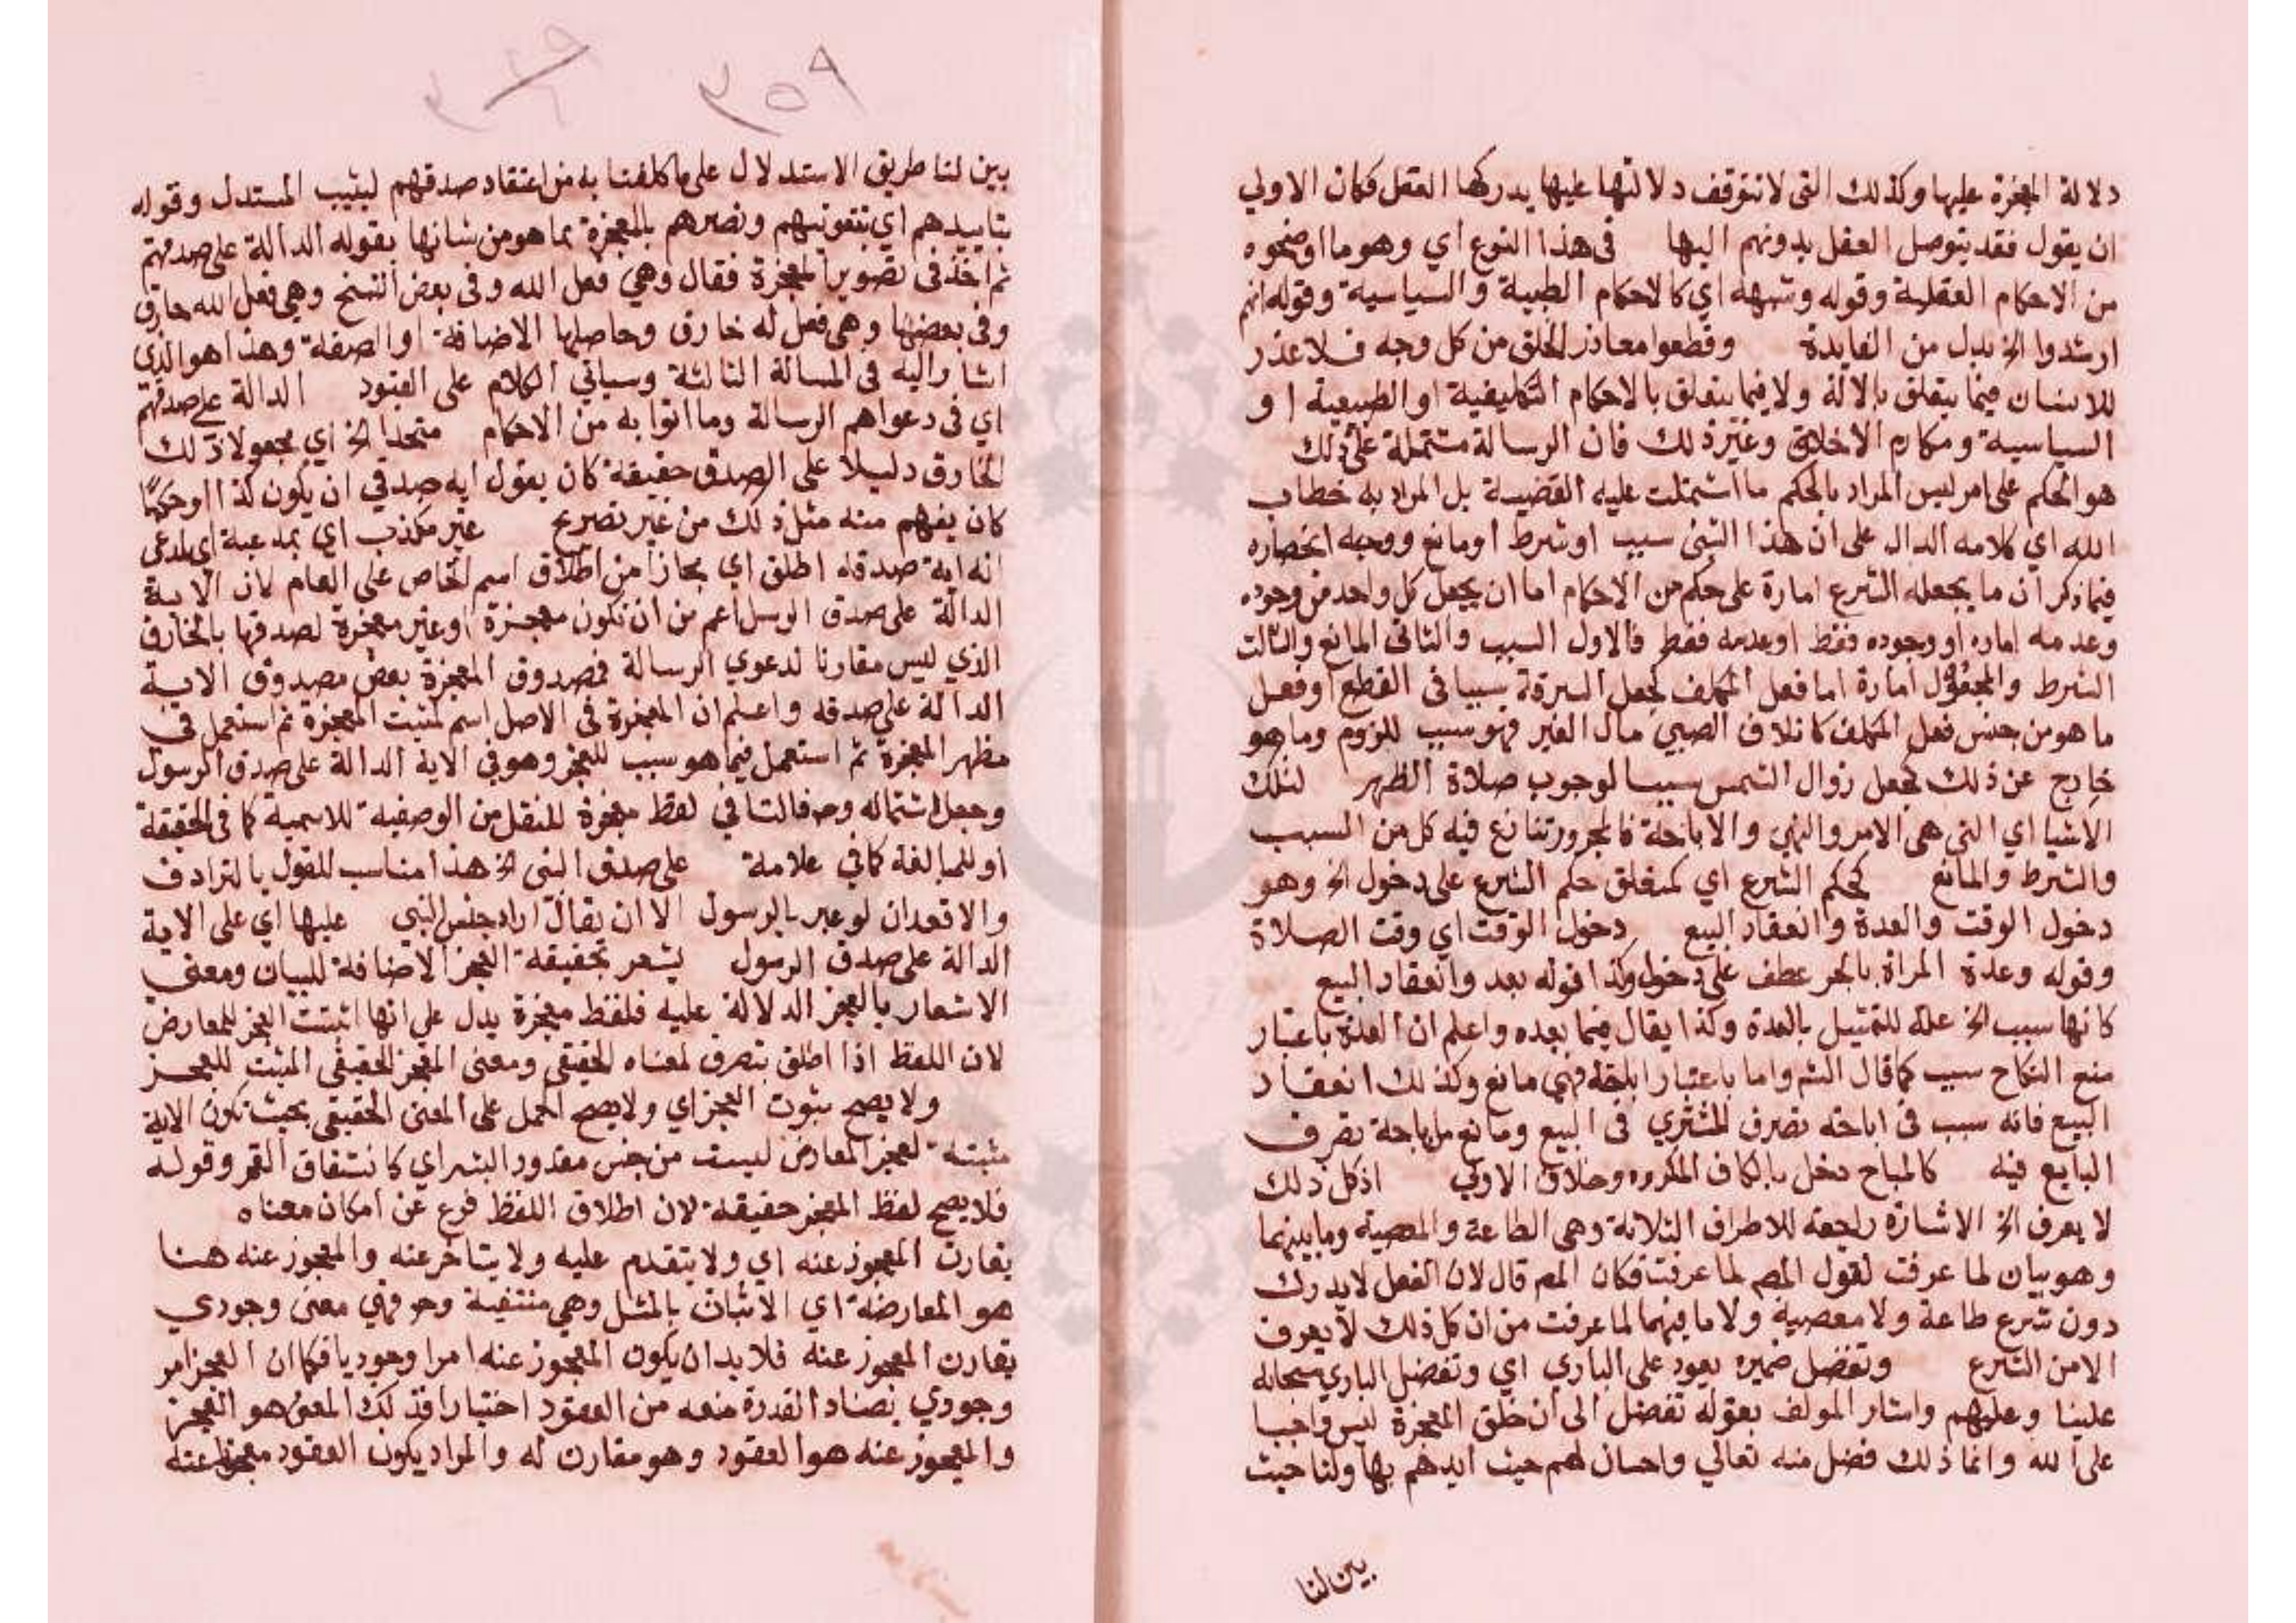 دلالة المعجزة عليها وكذلك التى لا تتوقف دلالتها عليها يدركها العقل فكان الاولي
ان يقول فقد يتوصل العقل بدونهم اليها فى هذا النوع أي وهو ما اوضحوه
من الاحكام العقلية وقوله وشبهه اي كالاحكام الطبية والسياسية وقوله انهم
ارشدوا الخ بدل من الفايدة وقطعوا معاذر الخلق من كل وجه فلا عذر
للانسان فيما يتعلق بالالة ولا فيما يتعلق بالاحكام التكليفية او الطبيعية او
السياسية ومكارم الاخلاق وغير ذلك فان الرسالة مشتملة على ذلك
هو الحكم على امر ليس المراد بالحكم ما اشتملت عليه القضية بل المراد به خطاب
الله اي كلامه الدال على ان هذا الشى سبب او شرط أو مانع ووجه انحصاره
فيما ذكر ان ما يجعله الشرع امارة على حكم من الاحكام اما ان يجعل كل واحد من وجوده
وعدمه اماره أو وجوده فقط او عدمه فقط فالاول السبب والثانى المانع والثالث
الشرط والمجعول امارة اما فعل المكلف كجعل السرقة سببا فى القطع أو فعل
ما هو من جنس فعل المكلف كاتلاف الصبي مال الغير فهو سبب للزوم وما هو
خارج عن ذلك كجعل زوال الشمس سببا لوجوب صلاة الظهر لتلك
الاشيا اي التى هى الامر والنهي والاباحة فالمجرور تنازع فيه كل من السبب
والشرط والمانع كحكم الشرع اي كتعلق حكم الشرع على دخول الخ وهو
دخول الوقت والعدة وانعقاد البيع دخول الوقت اي وقت الصلاة
وقوله وعدة المراة بالجر عطف على دخول وكذا قوله بعد وانعقاد البيع
كانها سبب الخ علة للتمثيل بالعدة وكذا يقال فيما بعده واعلم ان العدة باعتبار
منع النكاح سبب كما قال الشم واما باعتبار اباحته فهي مانع وكذلك انعقاد
البيع فانه سبب فى اباحة تصرف المشتري فى البيع ومانع من اباحة تصرف
البايع فيه كالمباح دخل بالكاف المكروه وخلاف الاولي اذ كل ذلك
لا يعرف الخ الاشارة راجعة للاطراف الثلاثة وهى الطاعة والمعصية وما بينهما
وهو بيان لما عرفت لقول المصم لما عرفت فكان المصم قال لان العقل لا يدرك
دون شرع طاعة ولا معصية ولا ما بينهما لما عرفت من ان كل ذلك لا يعرف
الا من الشرع وتفضل ضميره يعود على الباري اي وتفضل الباري سبحانه
علينا وعليهم واشار المولف بقوله تفضل الى أن خلق المعجزة ليس واجبا
على الله وانما ذلك فضل منه تعالي واحسان لهم حيث ايدهم بها ولنا حيث
بين لنا
٣٥٨
بين لنا طريق الاستدلال على ما كلفنا به من اعتقاد صدقهم ليثيب المستدل وقوله
بتاييدهم اي بتقويتهم ونصرهم بالمعجزة بما هو من شانها بقوله الدالة على صدقهم
ثم اخذ فى تصوير المعجزة فقال وهي فعل الله وفى بعض النسخ وهى فعل الله خارق
وفى بعضها وهى فعل له خارق وحاصلها الاضافة او الصفة وهذا هو الذي
اشار اليه فى المسالة الثالثة وسياتي الكلام على القيود الدالة على صدقهم
اي فى دعواهم الرسالة وما اتوا به من الاحكام متحديا الخ اي مجعولا ذلك
الخارق دليلا على الصدق حقيقة كان يقول اية صدقي ان يكون كذا او حكمًا
كان يفهم منه مثل ذلك من غير تصريح غير مكذب اي بمدعيه اي المدعى
انه اية صدقه اطلق اي مجازا من اطلاق اسم الخاص على العام لان الاية
الدالة على صدق الرسل أعم من ان تكون معجزة او غير معجزة لصدقها بالخارق
الذي ليس مقارنا لدعوي الرسالة فمصدوق المعجزة بعض مصدوق الاية
الدالة على صدقه واعلم ان المعجزة فى الاصل اسم لمثبت المعجزة ثم استعمل فى
مظهر المعجزة ثم استعمل فيما هو سبب للعجز وهو في الاية الدالة على صدق الرسول
وجعل اشتماله وح فالتا في لفظ معجزة للنقل من الوصفية للاسمية كما فى الحقيقة
او للمبالغة كما في علامة على صدق النبى الخ هذا مناسب للقول بالترادف
والا قعد ان لو عبر بالرسول الا ان يقال اراد جنس النبي عليها اي على الاية
الدالة على صدق الرسول يشعر بحقيقة العجز الاضافة للبيان ومعنى
الاشعار بالعجز الدلالة عليه فلفظ معجزة يدل على انها اثبتت العجز للمعارض
لان اللفظ اذا اطلق ينصرف لمعناه الحقيقى ومعنى المعجز الحقيقى المثبت للعجز
ولا يصح ثبوت العجز اي ولا يصح الحمل على المعنى الحقيقى بحيث تكون الاية
مثبتة لعجز المعارض ليست من جنس مقدور البشر اي كانشقاق القمر وقوله
فلا يصح لفظ المعجز حقيقة لان اطلاق اللفظ فرع عن امكان معناه
يقارن المعجوز عنه اي ولا يتقدم عليه ولا يتاخر عنه والمعجوز عنه هنا
هو المعارضة اي الاتيان بالمثل وهي منتفية وح فهي معنى وجودي
يقارن المعجوز عنه فلا بد ان يكون المعجوز عنه امرا وجوديا فكما ان العجز امر
وجودي يضاد القدرة منعه من القعود اختيارا فذلك المعنى هو العجز
والمعجوز عنه هو القعود وهو مقارن له والمراد يكون القعود معجوزا عنه